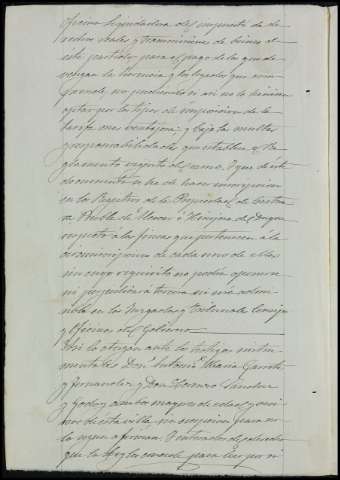 oficina liquidadora del impuesto de de-
rechos reales y transmisiones de bienes de
este partido para el pago de los que de-
vengan la herencia y los legados que com-
prende, no pudiendo si así no lo hicieren
optar por los tipos de imposición de la
tarifa mas ventajosa; y bajo la multa
y responsabilidades que establece el Re-
glamento vigente del ramo. Y que de éste
documento se ha de hacer inscripción
en los Registros de la Propiedad de
la Puebla de Alcocer é Hinojosa del Duque
respecto á las fincas que pertenecen á la
circunscripcion de cada uno de ellos
sin cuyo requisito no podrá oponerse
ni perjudicar á tercero ni será admi-
sible en los Juzgados y Tribunales Consejos
y Oficinas del Gobierno.
Así lo otorgan ante los testigos instru-
mentales Don Antonio Maria
y Fernandez y Don
y Godoy ambos mayores de edad y veci-
nos de esta villa, no escepcion para
y firman. Enterados de
que la ley les concede para leer por si